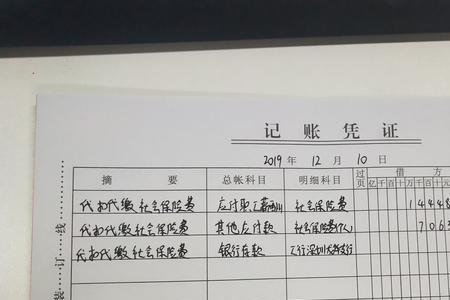 记账凭证
2019 年 12 月 10 日
摘要 总帐科目 明细科目 过页 借方
亿千百十万千百
代扣代缴社会保险费 应付职工薪酬 社会保险费 14448
代扣代缴社会保险费 其他应付款 社会保险费(个人) 7063
代扣代缴社会保险费 银行存款 工行深圳 支行
订线
装